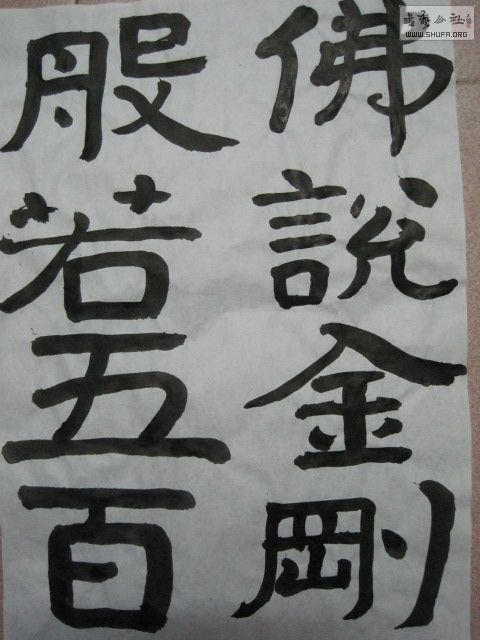 佛說金剛
般若五百
書藝公社
WWW.SHUFA.ORG